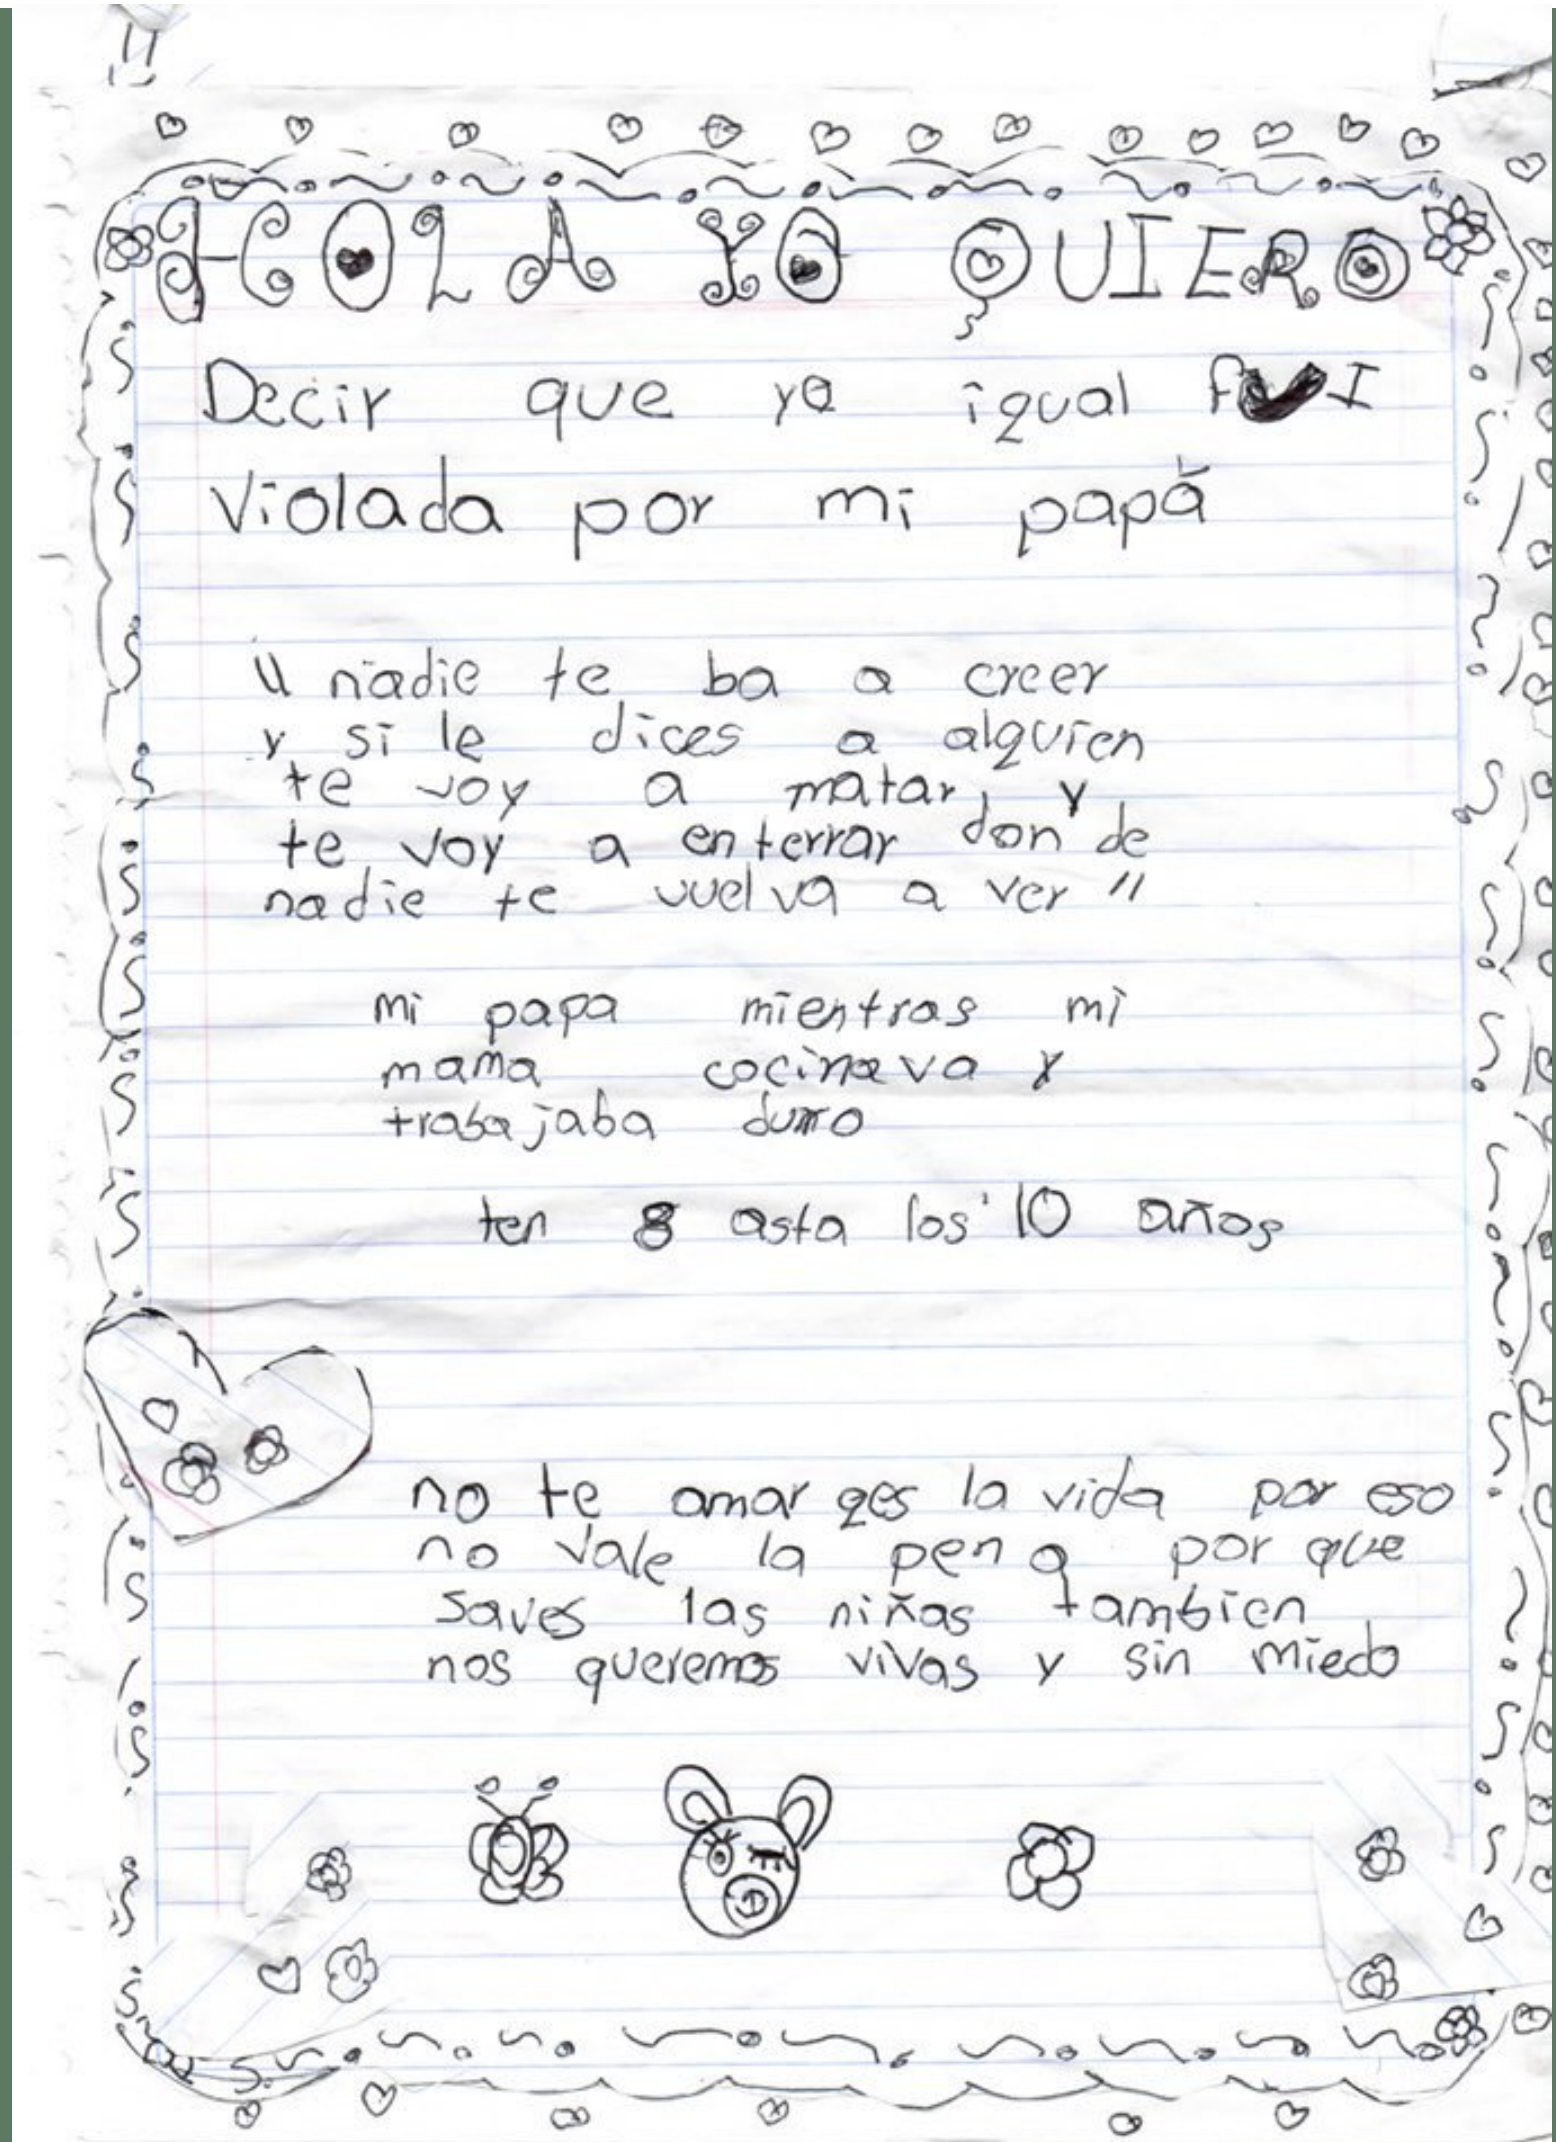 HOLA YO QUIERO
Decir que yo igual fUI
Violada por mi papá
"nadie te ba a creer
y si le dices a alguien
te voy a matar, y
te voy a enterrar don de
nadie te vuelva a ver"
mi papa mientras mi
mama cocinava y
trabajaba duro
ten 8 asta los 10 años
no te amar qes la vida por eso
no vale la pena por que
saves las niñas tambien
nos queremos vivas y sin miedo